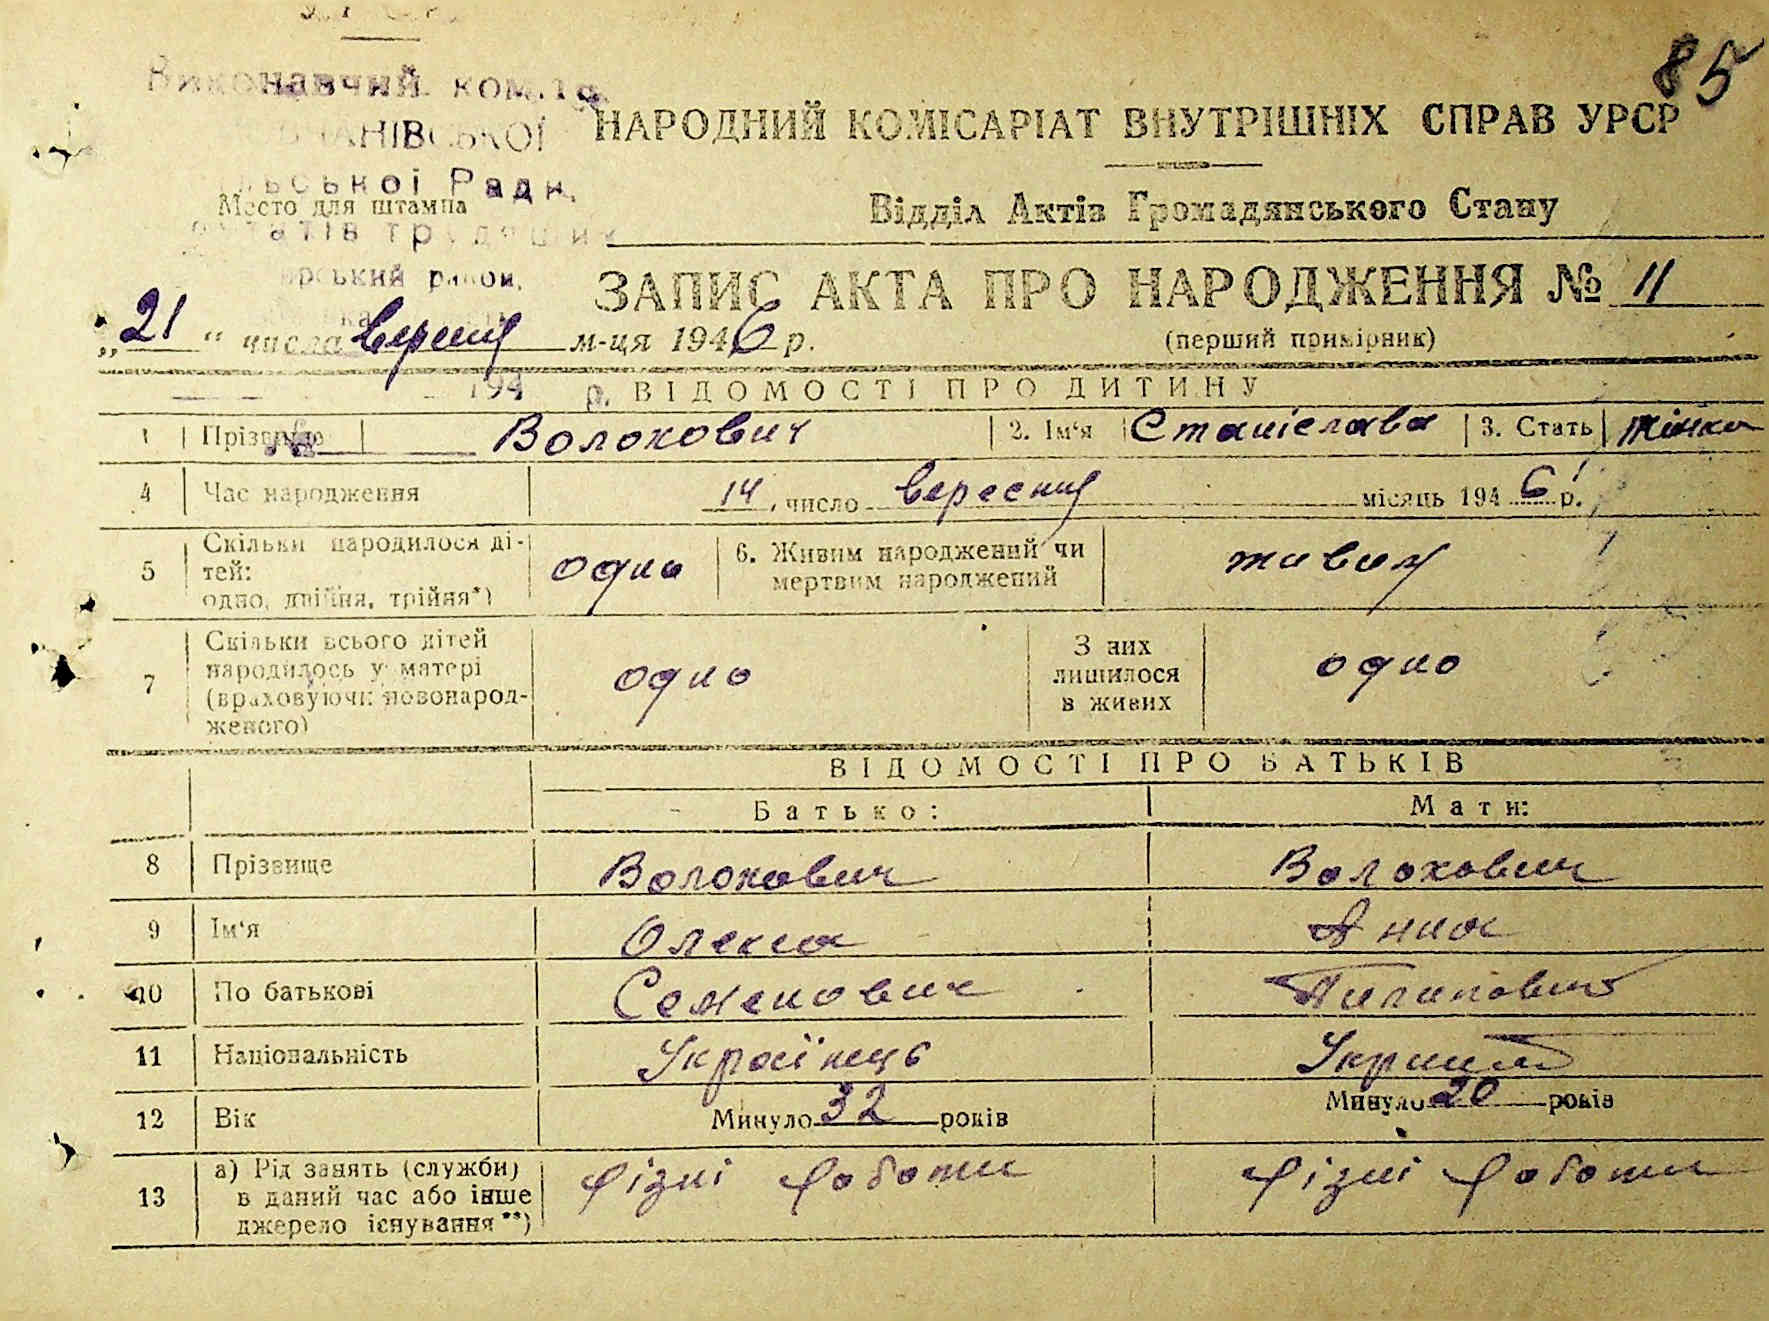 85
Виконавчий
НАРОДНИЙ КОМІСАРІАТ ВНУТРІШНІХ СПРАВ УРСР
Ради
Место для штампа
Відділ Актів Громадянського Стану
ЗАПИС АКТА ПРО НАРОДЖЕННЯ № 11
„21“ числа вересня м-ця 1946 р.
(перший примірник)
194 р.
ВІДОМОСТІ ПРО ДИТИНУ
1 Прізвище Волохович 2. Ім'я Станіслава 3. Стать жінка
4 Час народження 14 число вересня місяць 1946 р.
5 Скільки народилося ді-
тей:
одно, двійня, трійня*) одно 6. Живим народжений чи
мертвим народжений живим
7 Скільки всього дітей
народилось у матері
(враховуючи новонарод-
женого) одно З них
лишилося
в живих одно
ВІДОМОСТІ ПРО БАТЬКІВ
Батько: Мати:
8 Прізвище Волохович Волохович
9 Ім'я Олекса Анна
10 По батькові Семенович Пилипович
11 Національність Українець
12 Вік Минуло 32 років Минуло 20 років
13 а) Рід занять (служби)
в даний час або інше
джерело існування**) Різні роботи Різні роботи